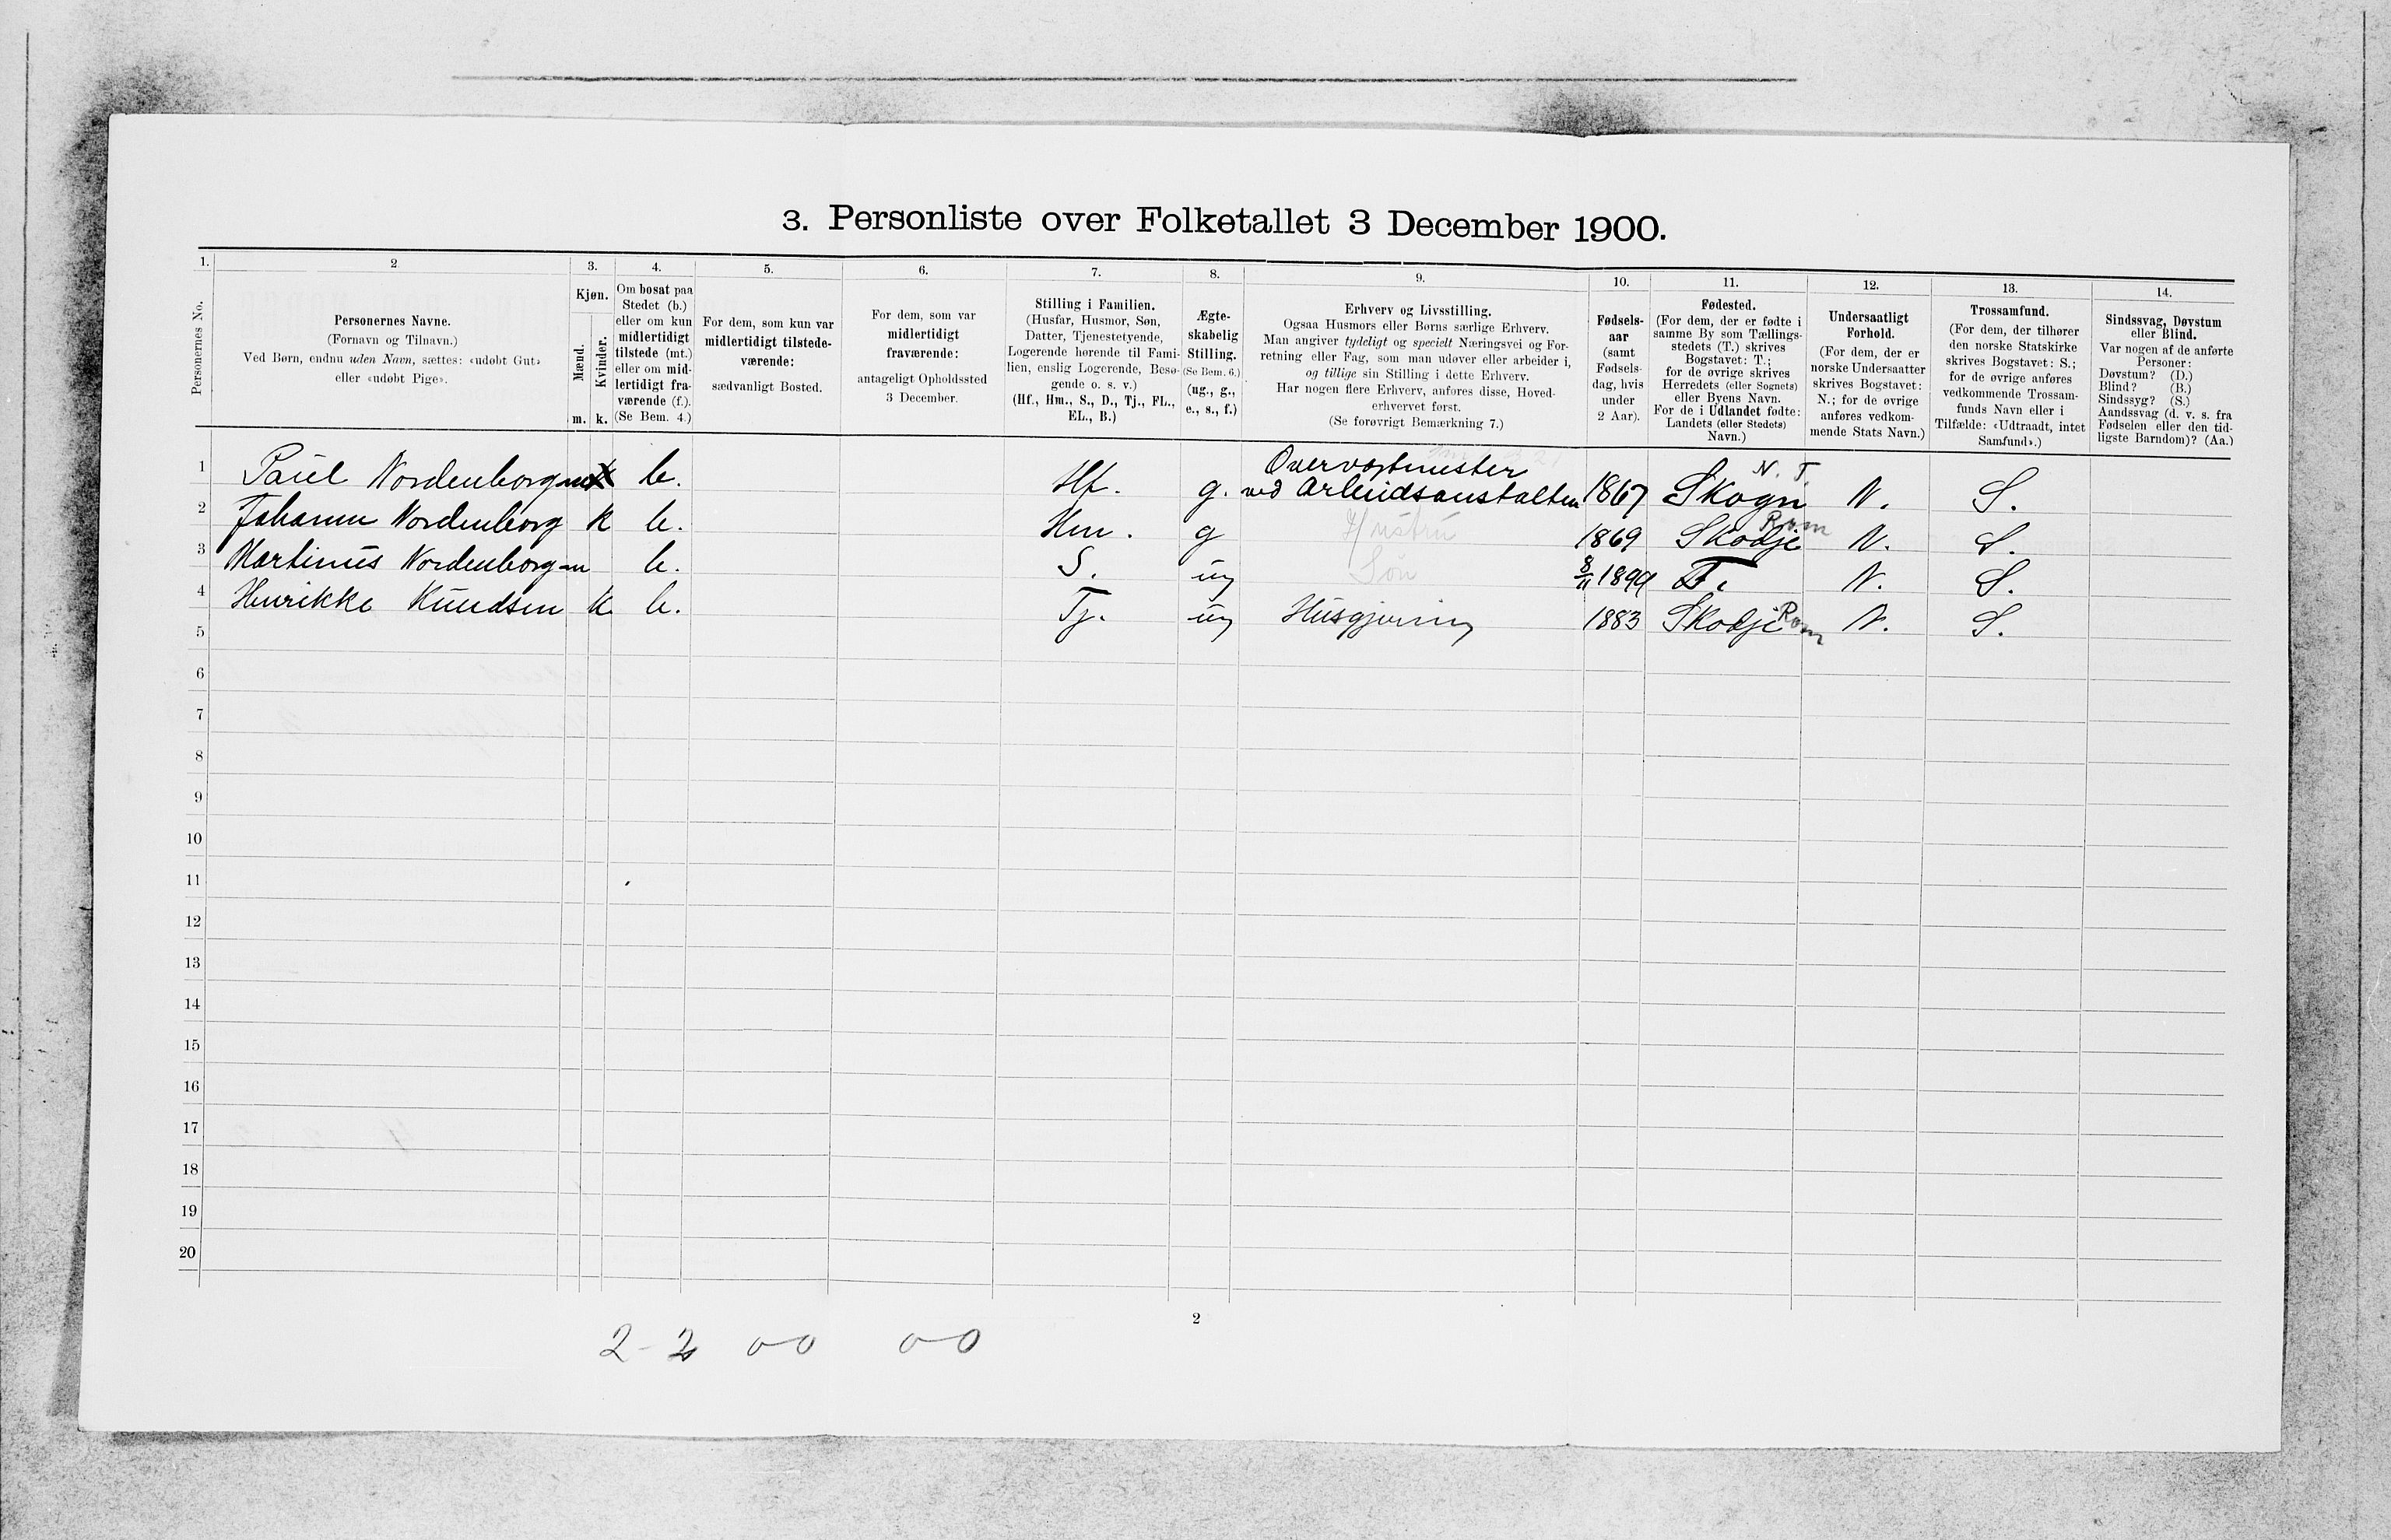 3. Personliste over Folketallet 3 December 1900.
1. 2 3. 4. 5. 6. 7. 8. 9. 10. 11. 12. 13. 14.
Personernes No.
Personernes Navne.
(Fornavn og Tilnavn.)
Ved Børn, endnu uden Navn, sættes: «udøbt Gut»
eller «udøbt Pige».
Kjøn.
Mænd.
Kvinder.
m. k.
Om bosat paa
Stedet (b.)
eller om kun
midlertidigt
tilstede (mt.)
eller om mid-
lertidigt fra-
værende (f.).
(Se Bem. 4.)
For dem, som kun var
midlertidigt tilstede-
værende:
sædvanligt Bosted.
For dem, som var
midlertidigt
fraværende:
antageligt Opholdssted
3 December.
Stilling i Familien.
(Husfar, Husmor, Søn,
Datter, Tjenestetyende,
Logerende hørende til Fami-
lien, enslig Logerende, Besø-
gende o. s. v.)
(Hf., Hm., S., D., Tj., FL.,
EL., B.)
Ægte-
skabelig
Stilling.
(Se Bem. 6.)
(ug., g.,
e., s., f.)
Erhverv og Livsstilling.
Ogsaa Husmors eller Børns særlige Erhverv.
Man angiver tydeligt og specielt Næringsvei og For-
retning eller Fag, som man udøver eller arbeider i,
og tillige sin Stilling i dette Erhverv.
Har nogen flere Erhverv, anføres disse, Hoved-
erhvervet først.
(Se forøvrigt Bemærkning 7.)
Fødsels-
aar
(samt
Fødsels-
dag, hvis
under
2 Aar).
Fødested.
(For dem, der er fødte i
samme By som Tællings-
stedets (T.) skrives
Bogstavet: T.;
for de øvrige skrives
Herredets (eller Sognets)
eller Byens Navn.
For de i Udlandet fødte:
Landets (eller Stedets)
Navn.)
Undersaatligt
Forhold.
(For dem, der er
norske Undersaatter
skrives Bogstavet:
N.; for de øvrige
anføres vedkom-
mende Stats Navn.)
Trossamfund.
(For dem, der tilhører
den norske Statskirke
skrives Bogstavet: S.;
for de øvrige anføres
vedkommende Trossam-
funds Navn eller i
Tilfælde: «Udtraadt, intet
Samfund».)
Sindssvag, Døvstum
eller Blind.
Var nogen af de anførte
Personer:
Døvstum? (D.)
Blind? (B.)
Sindssyg? (S.)
Aandssvag (d. v. s. fra
Fødselen eller den tid-
ligste Barndom)? (Aa.)
Overvagtmester N. T.
1 Paul Nordenborg m b. Hf. g. ved Arbeidsanstalten 1867 Skogn N. S.
Rom
2 Johanne Nordenborg k b. Hm. g Hustru 1869 Skodje N. S.
3 Martinus Nordenborg m b. S. ug Søn 8/11 1899 T. N. S.
4 Henrikke Knudsen k b. Tj. ug Husgjerning 1883 Skodje Rom N. S.
5
6
7
8
9
10
11
12
13
14
15
16
17
18
19
20
2
2-2 0-0 0-0